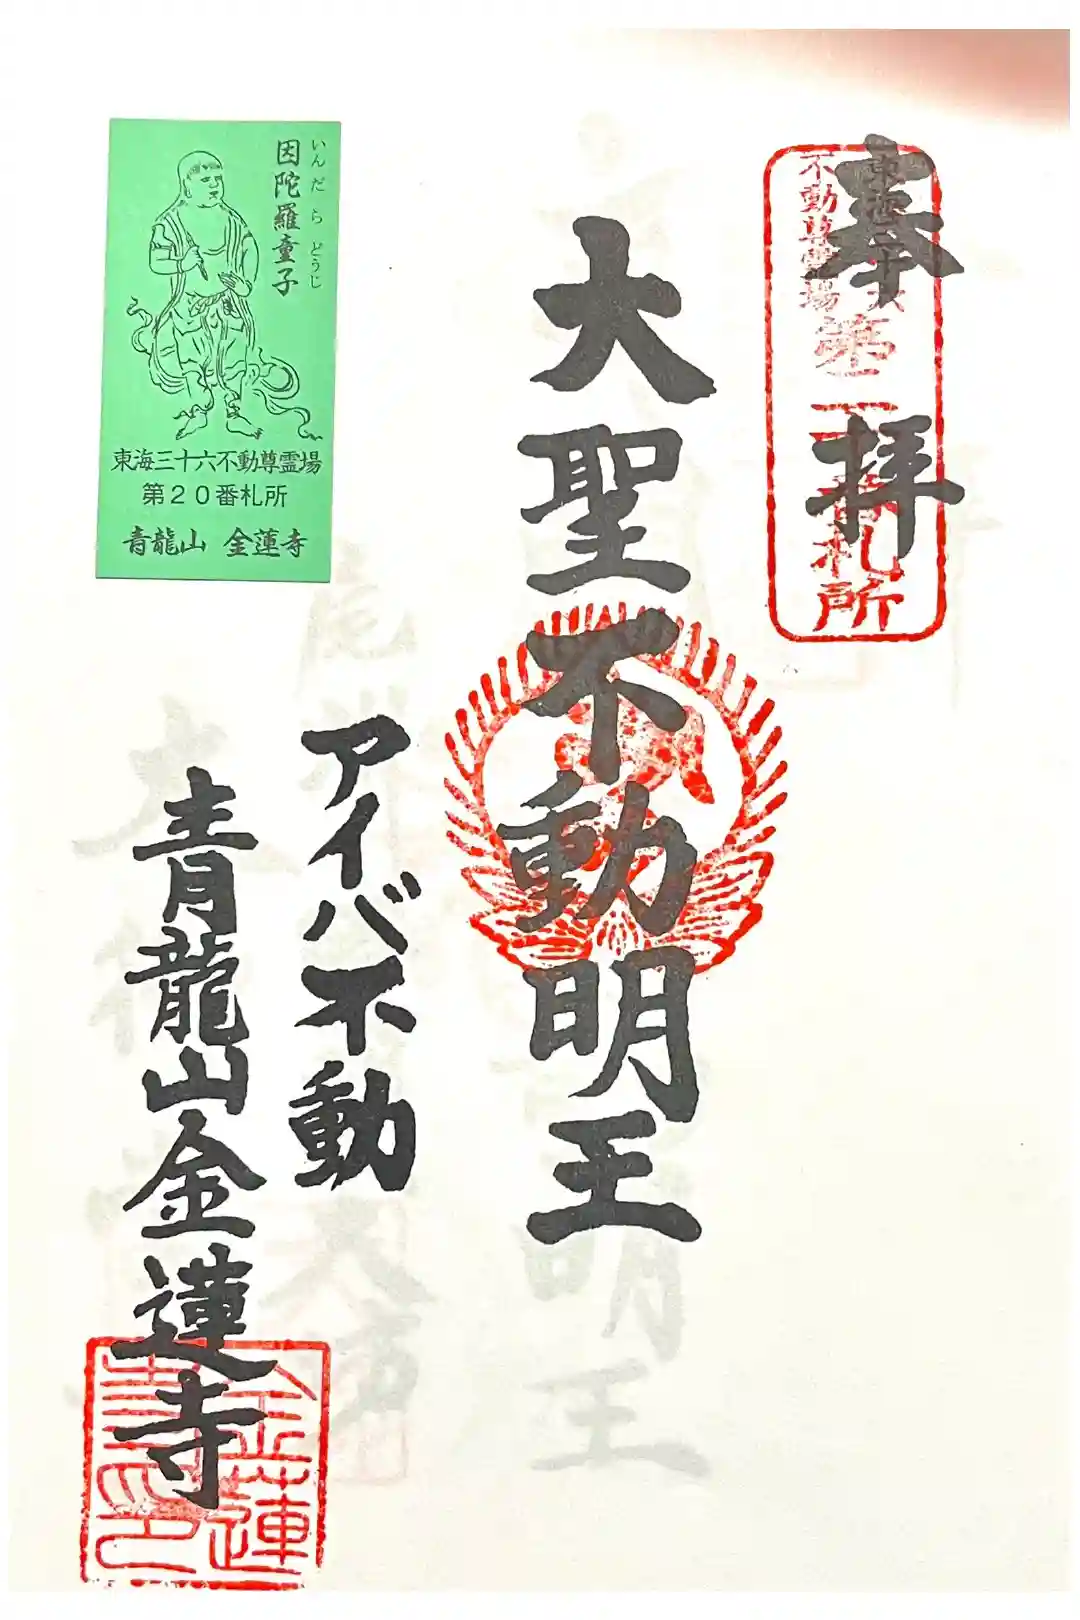 奉拝
東海三十六
不動尊霊場
第二十番札所
大聖不動明王
アイバ不動
青龍山金蓮寺
金蓮
寺印
因陀羅童子
いんだら どうじ
東海三十六不動尊霊場
第20番札所
青龍山 金蓮寺